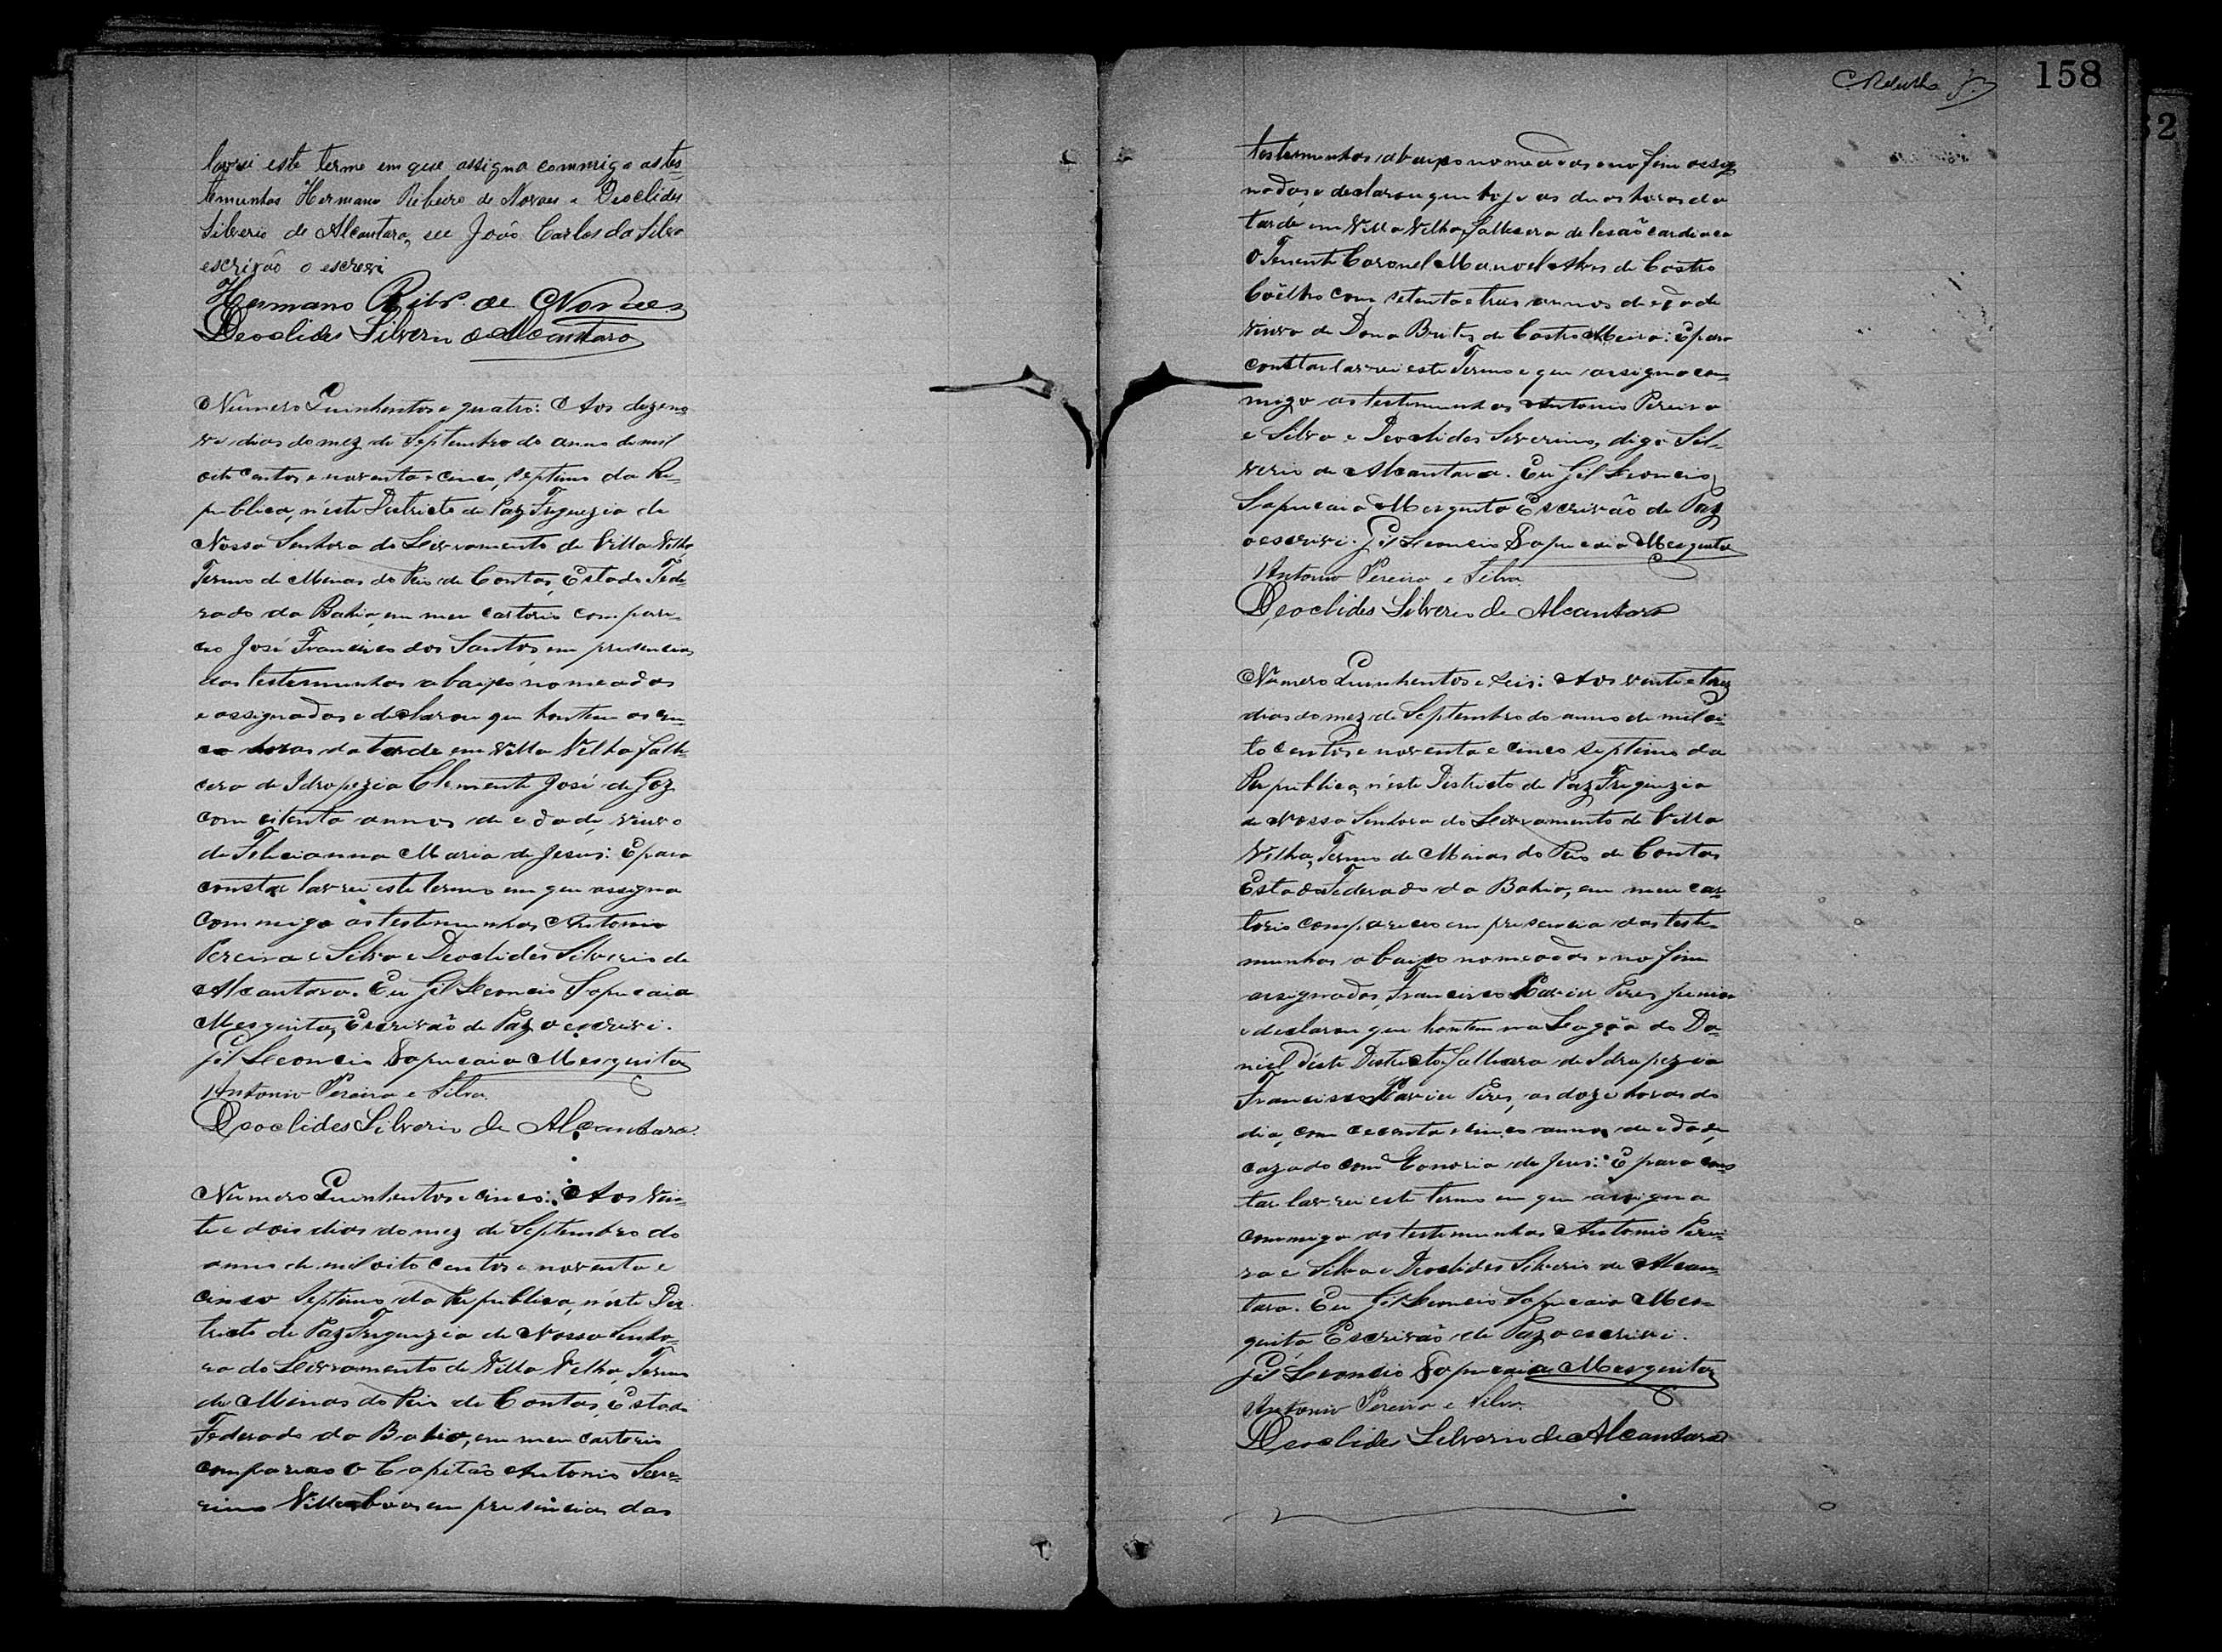 lavrei este termo em que assigna commigo as tes-
temunhas Hermano Ribeiro de Novaes e Deoclides
Silverio de Alcantara, eu João Carlos da Silva
escrivão o escrevi
Hermano Ribr.º de Novaes
Deoclides Silverio de Alcantara
Numero Quinhentos e quatro: Aos dezeno
ve dias do mez de Septembro do anno de mil
oito centos e noventa e cinco, septimo da Re-
publica, n'este Districto de Paz Freguezia de
Nossa Senhora do Livramento de Villa Velha,
Termo de Minas do Rio de Contas, Estado Fede-
rado da Bahia, em meu cartorio compare-
ceo José Francisco dos Santos, em presencia
das testemunhas abaixo nomeados
e assignados e declarou que hontem as cin-
co horas da tarde em Villa Velha falle-
cera de Idropezia Clemente José de Goz
com oitenta annos de edade, viuvo
de Felicianna Maria de Jesus: E para
constar lavrei este termo em que assigna
commigo as testemunhas Antonio
Pereira e Silva e Deoclides Silverio de
Alcantara. Eu Gil Leoncio Sapucaia
Mesquita, Escrivão de Paz o escrivi.
Gil Leoncio Sapucaia Mesquita
Antonio Pereira e Silva.
Deoclides Silverio de Alcantara.
Numero Quinhentos e cinco: Aos vin-
te e dois dias do mez de Septembro do
anno de mil oito centos e noventa e
cinco Septimo da Republica, n'este Dis-
tricto de Paz Freguezia de Nossa Senho-
ra do Livramento de Villa Velha, Termo
de Minas do Rio de Contas, Estado
Federado da Bahia, em meu cartorio
compareceo o Capitão Antonio Seve-
rino Villasboas em presencia das
158
testemunhas abaixo nomeados e no fim assig
nados, e declarou que hoje as duas horas da
tarde em Villa Velha, fallecera de lesão cardiaca
o Tenente Coronel Manoel Alves de Castro
Coêlho com setenta e tres annos de edade
viuvo de Dona Brites de Castro Meira: E para
constar lavrei este Termo e que assigna co-
migo as testemunhas Antonio Pereira
e Silva e Deoclides Severino, digo Sil-
verio de Alcantara. Eu Gil Leoncio
Sapucaia Mesquita Escrivão de Paz
o escrivi. Gil Leoncio Sapucaia Mesquita
Antonio Pereira e Silva.
Deoclides Silverio de Alcantara
Numero Quinhentos e seis: Aos vinte e trez
dias do mez de Septembro do anno de mil oi-
to centos e noventa e cinco septimo da
Republica, n'este Districto de Paz Freguezia
de Nossa Senhora do Livramento de Villa
Velha, Termo de Minas do Rio de Contas
Estado Federado da Bahia, em meu car-
torio compareceo em presencia das teste-
munhas abaixo nomeados e no fim
assignados, Francisco Xavier Pires Junior
e declarou que hontem na Lagôa do Da-
niel d'este Districto fallecera de Idropezia
Francisco Xavier Pires, as doze horas do
dia, com cecenta e cinco annos de edade,
cazado com Honoria de Jesus: E para cons
tar lavrei este termo em que assigna
commigo as testemunhas Antonio Perei-
ra e Silva e Deoclides Silverio de Alcan-
tara. Eu Gil Leoncio Sapucaia Mes-
quita Escrivão de Paz o escrivi.
Gil Leoncio Sapucaia Mesquita
Antonio Pereira e Silva.
Deoclides Silverio de Alcantara